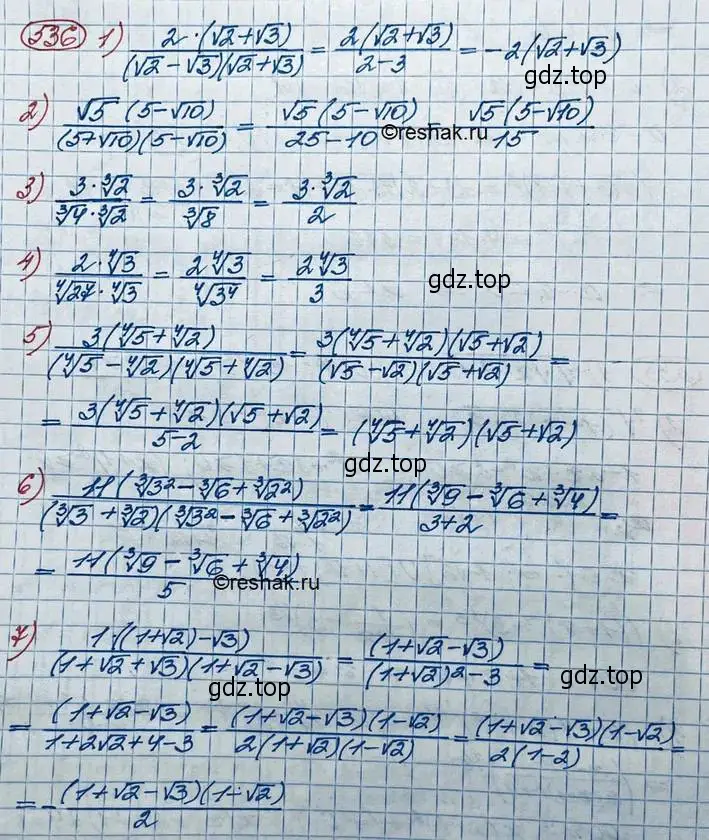 536 1) 2·(√2+√3)/((√2−√3)(√2+√3)) = 2(√2+√3)/(2−3) = −2(√2+√3)
gdz.top
2) √5(5−√10)/((5+√10)(5−√10)) = √5(5−√10)/(25−10) = √5(5−√10)/15
©reshak.ru
3) 3·∛2/(∛4·∛2) = 3·∛2/∛8 = 3·∛2/2
4) 2·∜3/(∜27·∜3) = 2∜3/∜3⁴ = 2∜3/3
gdz.top
5) 3(∜5+∜2)/((∜5−∜2)(∜5+∜2)) = 3(∜5+∜2)(√5+√2)/((√5−√2)(√5+√2)) =
= 3(∜5+∜2)(√5+√2)/(5−2) = (∜5+∜2)(√5+√2)
gdz.top
6) 11(∛3²−∛6+∛2²)/((∛3+∛2)(∛3²−∛6+∛2²)) = 11(∛9−∛6+∛4)/(3+2) =
= 11(∛9−∛6+∛4)/5
©reshak.ru
7) 1·((1+√2)−√3)/((1+√2+√3)(1+√2−√3)) = (1+√2−√3)/((1+√2)²−3) =
gdz.top gdz.top
= (1+√2−√3)/(1+2√2+4−3) = (1+√2−√3)(1−√2)/(2(1+√2)(1−√2)) = (1+√2−√3)(1−√2)/(2(1−2)) =
= −(1+√2−√3)(1−√2)/2
gdz.top